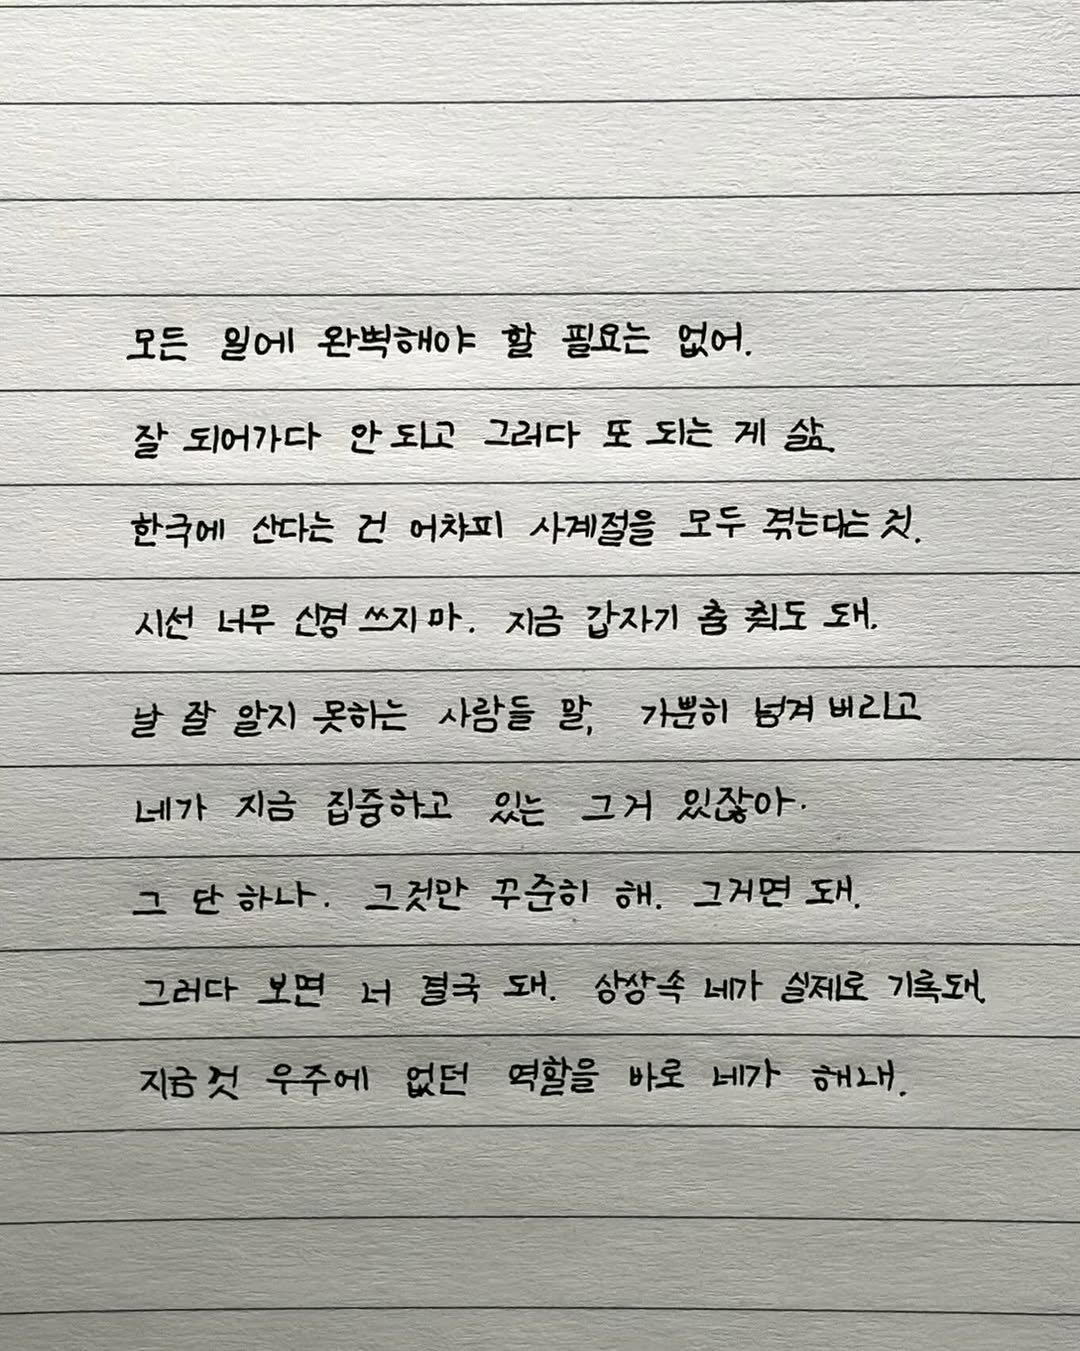 모든 일에 완벽해야 할 필요는 없어.
잘 되어가다 안 되고 그러다 또 되는 게 삶.
한국에 산다는 건 어차피 사계절을 모두 겪는다는 것.
시선 너무 신경 쓰지 마. 지금 갑자기 춤 춰도 돼.
날 잘 알지 못하는 사람들 말, 가뿐히 넘겨 버리고
네가 지금 집중하고 있는 그거 있잖아.
그 단 하나. 그것만 꾸준히 해. 그거면 돼.
그러다 보면 너 결국 돼. 상상속 네가 실제로 기록돼.
지금껏 우주에 없던 역할을 바로 네가 해내.